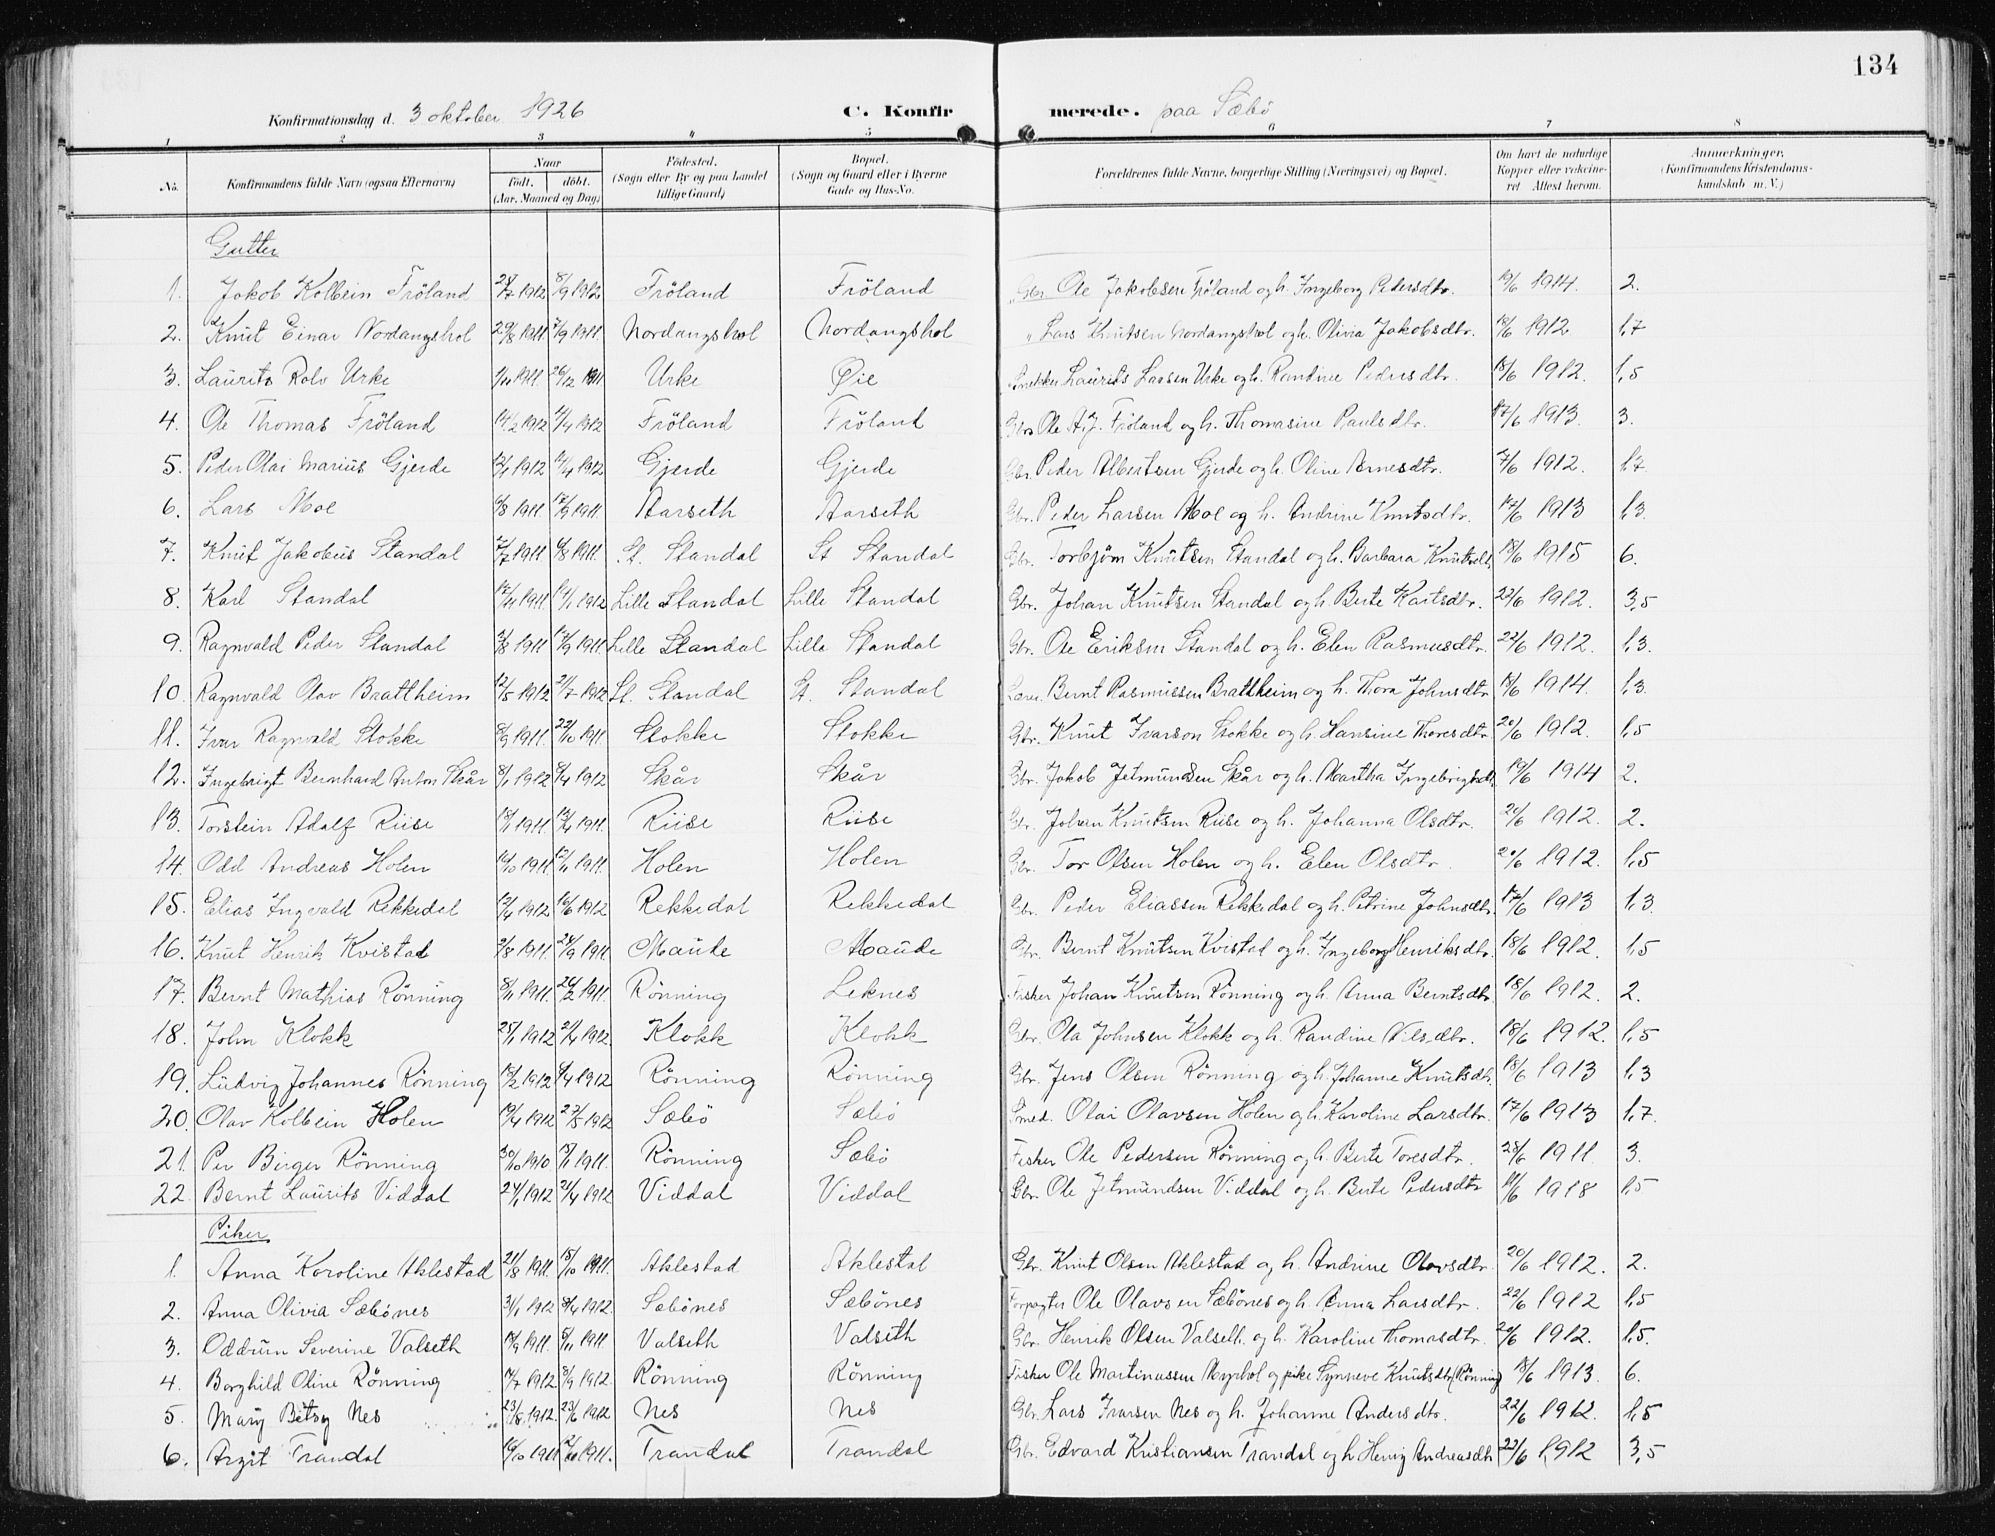 134
Konfirmationsdag d. 3 oktober 1926 C. Konfirmerede. paa Sæbö
1 2 3 4 5 6 7 8
No. Konfirmandens fulde Navn (ogsaa Efternavn) Naar født. døbt. (Aar, Maaned og Dag) Fødested. (Sogn eller By og paa Landet tillige Gaard) Bopæl. (Sogn og Gaard eller i Byerne Gade og Hus-No. Forældrenes fulde Navne, borgerlige Stilling (Næringsvei) og Bopæl. Om havt de naturlige Kopper eller vakcineret. Attest herom. Anmærkninger. (Konfirmandens Kristendomskundskab m. V.)
Gutter
1. Jakob Kolbein Fröland 28/7 1912 8/9 1912 Fröland Fröland Gbr Ole Jakobsen Fröland og h. Ingeborg Pedersdtr. 19/6 1914. 2.
2. Knut Einar Nordangshol 29/8 1911 /9 1911 Nordangshol Nordangshol " Lars Knutsen Nordangshol og h. Olivia Jakobsdtr. 18/6 1912 1,7
3. Laurits Rolv Urke 1911 26/12 1911 Urke Øie Snekker Laurits Larsen Urke og h. Randine Pedersdtr. 18/6 1912. 1,5
4. Ole Thomas Fröland 14/2 1912 /4 1912 Fröland Fröland Gbr Ole A.J. Fröland og h. Thomasine Paulsdtr. 17/6 1913. 3.
5. Peder Olai Marius Gjerde 1912 /4 1912 Gjerde Gjerde Gbr Peder Albertsen Gjerde og h. Oline Arnesdtr. 7/6 1912. 1,7
6. Lars Moe 6/8 1911. 17/9 1911. Aarseth Aarseth Gbr. Peder Larsen Moe og h. Andrine Knutsdtr. 17/6 1913 1,3.
7. Knut Jakobus Standal /7 1911. 6/8 1911. St. Standal St Standal Gbr. Torbjörn Knutsen Standal og h. Barbara Knutsdt. 18/6 1915 6.
8. Karl Standal 17/11 1911. 14/1 1912 Lille Standal Lille Standal Gbr. Johan Knutsen Standal og h. Berte Karlsdtr. 22/6 1912. 3,5
9. Ragnvald Peder Standal /8 1911 17/9 1911. Lille Standal Lille Standal Gbr. Ole Eriksen Standal og h. Elen Rasmusdtr. 22/6 1912. 1,3.
10. Ragnvald Olav Brattheim 12/5 1912 21/7 1912 St. Standal St. Standal Lærer Bernt Rasmussen Brattheim og h. Thora Johnsdtr 18/6 1914. 1,3.
11. Ivar Ragnvald Stokke 8/9 1911. 22/10 1911. Stokke Stokke Gbr. Knut Ivarson Stokke og h. Hansine Thoresdtr. 20/6 1912. 1,5
12. Ingebrigt Bernhard Anton Skår 8/1 1912 8/4 1912 Skår Skår Gbr. Jakob Jetmundsen Skår og h. Martha Ingebrigtsdt. 19/6 1914 2.
13. Torstein Adolf Riise 1911. 1911. Riise Riise Gbr. Johan Knutsen Riise og h. Johanna Olsdtr. 20/6 1912. 2.
14. Odd Andreas Holen 14/10 1911. 12/11 1911. Holen Holen Gbr. Tor Olsen Holen og h. Elen Olsdtr. 20/6 1912. 1,5
15. Elias Ingvald Rekkedal 12/4 1912 16/6 1912 Rekkedal Rekkedal Gbr. Peder Eliassen Rekkedal og h. Petrine Johnsdtr. 17/6 1913 1,3.
16. Knut Henrik Kvistad /8 1911. 24/9 1911. Maude Maude Gbr. Bernt Knutsen Kvistad og h. Ingeborg Henriksdtr. 18/6 1912. 1,5
17. Bernt Mathias Rönning 8/1 1911. 26/2 1911. Rönning Leknes Fisker Johan Knutsen Rönning og h. Anna Berntsdtr. 18/6 1912. 2.
18. John Klokk 25/1 1912 21/4 1912. Klokk Klokk Gbr. Ola Johnsen Klokk og h. Randine Nilsdtr. 18/6 1912. 1,5
19. Ludvig Johannes Rönning 18/2 1912 8/4 1912 Rönning Rönning Gbr. Jens Olsen Rönning og h. Johanne Knutsdtr. 18/6 1913 1,3
20. Olav Kolbein Holen 19/4 1912 27/5 1912 Sæbö Sæbö Smed. Olai Olavsen Holen og h. Karoline Larsdtr. 17/6 1913 1,7.
21. Per Birger Rönning 30/10 1910. 1911. Rönning Sæbö Fisker Ole Pedersen Rönning og h. Berte Toresdtr. 28/6 1911 3.
22. Bernt Laurits Viddal 24/1 1912 21/4 1912 Viddal Viddal Gbr. Ole Jetmundsen Viddal og h. Berte Pedersdtr 11/6 1918 1,5
Piker
1. Anna Karoline Aklestad 21/8 1911. 15/10 1911. Aklestad Aklestad Gbr. Knut Olsen Aklestad og h. Andrine Olavsdtr. 20/6 1912. 2.
2. Anna Olivia Sæbönes 31/1 1912 8/4 1912. Sæbönes Sæbönes Forpagter Ole Olavsen Sæbönes og h. Anna Larsdtr. 22/6 1912 1,5
3. Oddrun Severine Valseth 14/9 1911. 5/11 1911. Valseth Valseth Gbr. Henrik Olsen Valseth og h. Karoline Thomasdtr. 20/6 1912. 1,5.
4. Borghild Oline Rönning /7 1912. 8/9 1912. Rönning Rönning Fisker Ole Martinussen Myrhol og pike Synneve Knutsdtr Rönning 18/6 1913. 6.
5. Mary Betsy Nes 23/5 1912. 23/6 1912 Nes Nes Gbr. Lars Ivarsen Nes og h. Johanne Andersdtr. 22/6 1912. 1,5
6. Argit Trandal 16/10 1911 1911. Trandal Trandal Gbr. Edvard Kristiansen Trandal og h Herrig Andreasdtr 22/6 1912 3,5